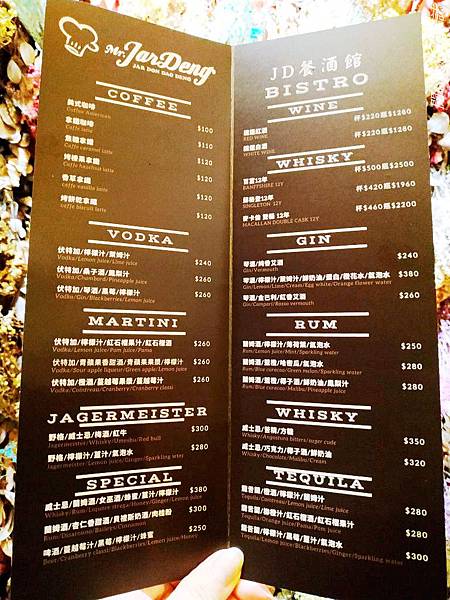 Mr. JarDeng
JAR DON DAO DENG
COFFEE
美式咖啡
Coffee American
拿鐵咖啡 $100
Caffe latte
焦糖拿鐵 $110
Caffe caramel latte
烤榛果拿鐵 $120
caffe hazelnut latte
香草拿鐵 $120
caffe vanilla latte
烤餅乾拿鐵 $120
caffe biscuit latte
VODKA
伏特加/檸檬汁/萊姆汁 $240
Vodka/Lemon juice/Lime juice
伏特加/桑子酒/鳳梨汁 $260
Vodka/Chambord/Pineapple juice
伏特加/琴酒/黑莓/檸檬汁 $260
Vodka/Gin/Blackberries/Lemon juice
MARTINI
伏特加/檸檬汁/紅石榴果汁/紅石榴酒 $260
Vodka/Lemon juice/Pom juice/Pama
伏特加/青蘋果香甜酒/青蘋果果漿/檸檬汁 $260
Vodka/Sour apple liqueur/Green apple/Lemon juice
伏特加/橙酒/蔓越莓果漿/蔓越莓汁 $260
Vodka/Cointreau/Cranberry/Cranberry classi
JAGERMEISTER
野格/威士忌/梅酒/紅牛 $300
Jagermeister/Whisky/Umeshu/Red bull
野格/檸檬汁/薑汁/氣泡水 $280
Jagermeister/Lemon juice/Ginger/Sparkling water
SPECIAL
威士忌/蘭姆酒/女巫酒/蜂蜜/薑汁/檸檬汁 $380
Whisky/Rum/Liquore strega/Honey/Ginger/Lemon juice
蘭姆酒/杏仁香甜酒/貝禮詩奶酒/肉桂粉 $300
Rum/Disaronno/Baileys/Cinnamon powder
啤酒/蔓越莓汁/黑莓/檸檬汁/蜂蜜 $250
Beer/Cranberry classi/Blackberries/Lemon juice/Honey
JD餐酒館
BISTRO
WINE
嚴選紅酒 杯$220瓶$1280
RED WINE
嚴選白酒 杯$220瓶$1280
WHITE WINE
WHISKY
百富12年 杯$500瓶$2500
BANFFSHIRE 12Y
蘇格登12年 杯$420瓶$1960
SINGLETON 12Y
麥卡倫 雙桶 12年 杯$460瓶$2200
MACALLAN DOUBLE CASK 12Y
GIN
琴酒/烤香艾酒 $240
Gin/Vermouth
琴酒/檸檬汁/萊姆汁/鮮奶油/蛋白/橙花水/氣泡水 $380
Gin/Lemon/Lime/Cream/Egg white/Orange flower water
琴酒/金巴利/紅香艾酒 $260
Gin/Campari/Rosso vermouth
RUM
蘭姆酒/檸檬汁/薄荷葉/氣泡水 $250
Rum/Lemon juice/Mint/Sparkling water
蘭姆酒/藍橙/哈密瓜/氣泡水 $280
Rum/Blue curacao/Green melon/Sparkling water
蘭姆酒/藍橙/椰子酒/鮮奶油/鳳梨汁 $280
Rum/Blue curacao/Malibu/Pineapple juice
WHISKY
威士忌/苦精/方糖 $350
Whisky/Angostura bitters/sugar cude
威士忌/巧克力/椰子酒/鮮奶油 $320
Whisky/Chocolate/Malibu/Cream
TEQUILA
龍舌蘭/橙酒/檸檬汁/萊姆汁 $280
Tequila/Cointreau/Lemon juice/Lime juice
龍舌蘭/柳橙汁/紅石榴酒/紅石榴果汁 $280
Tequila/Orange juice/Pama/Pom juice
龍舌蘭/檸檬汁/黑莓/薑汁/氣泡水 $300
Tequila/Lemon juice/Blackberries/Ginger/Sparkling water